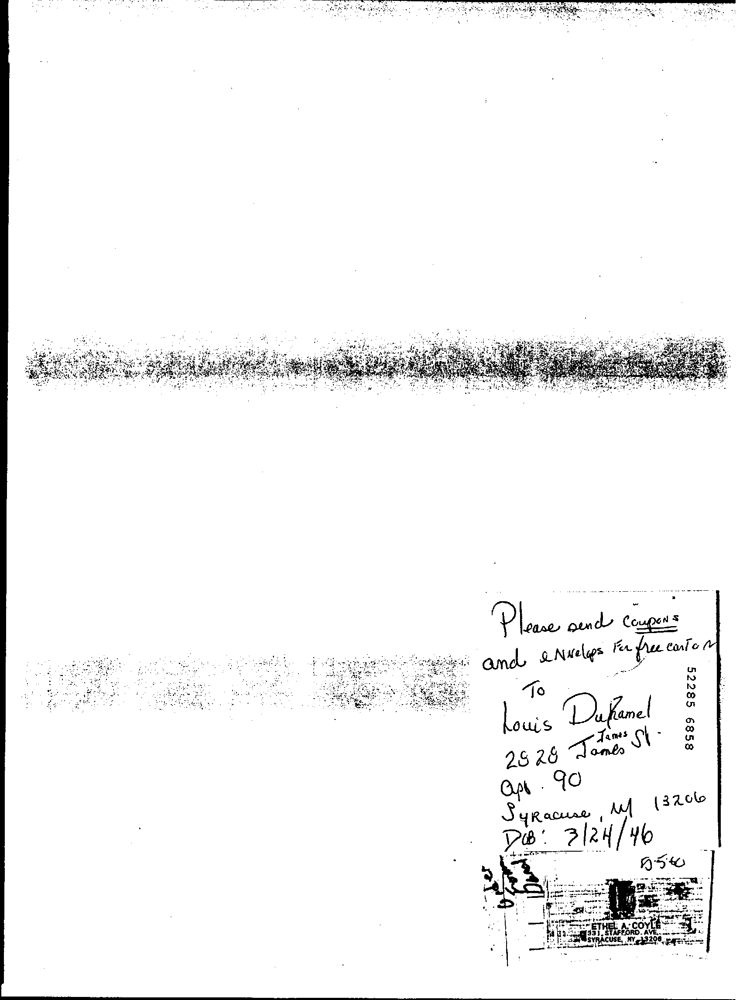 Please send coupons
and envelops For free carton
To
Louis Duhamel
2828 James St.
James
Apt. 90
Syracuse, NY 13206
DOB: 3/24/46
52285 6858
ETHEL A. COYLE
331 STAFFORD AVE
SYRACUSE, NY 13206